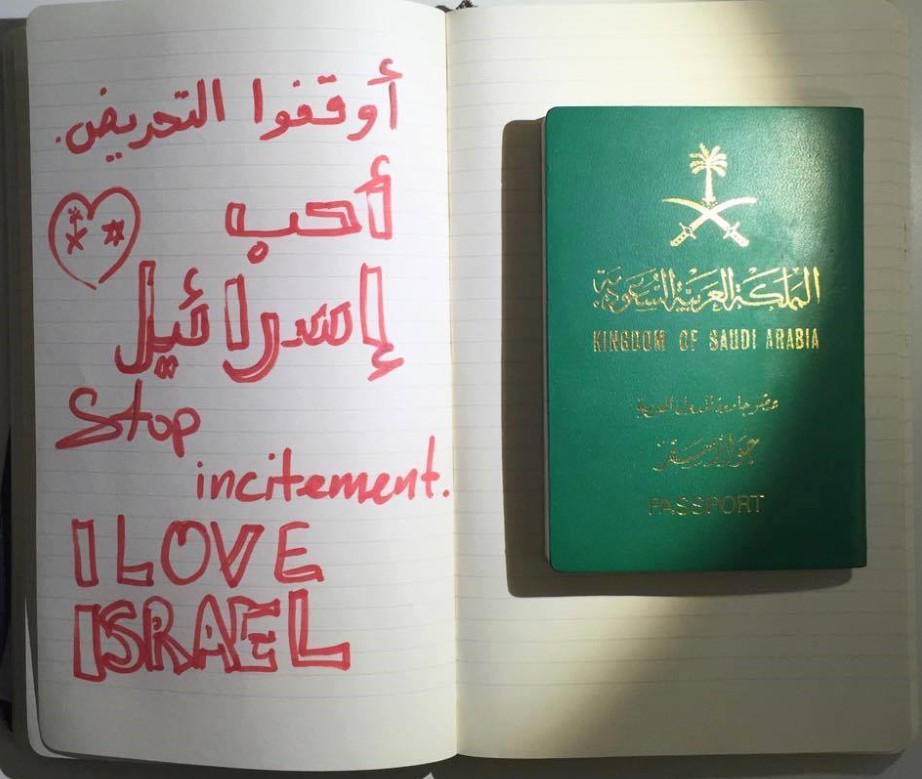 أوقفوا التحريض.
أحب
إسرائيل
Stop
incitement.
I LOVE
ISRAEL
المملكة العربية السعودية
KINGDOM OF SAUDI ARABIA
عضو جامعة الدول العربية
جواز سفر
PASSPORT